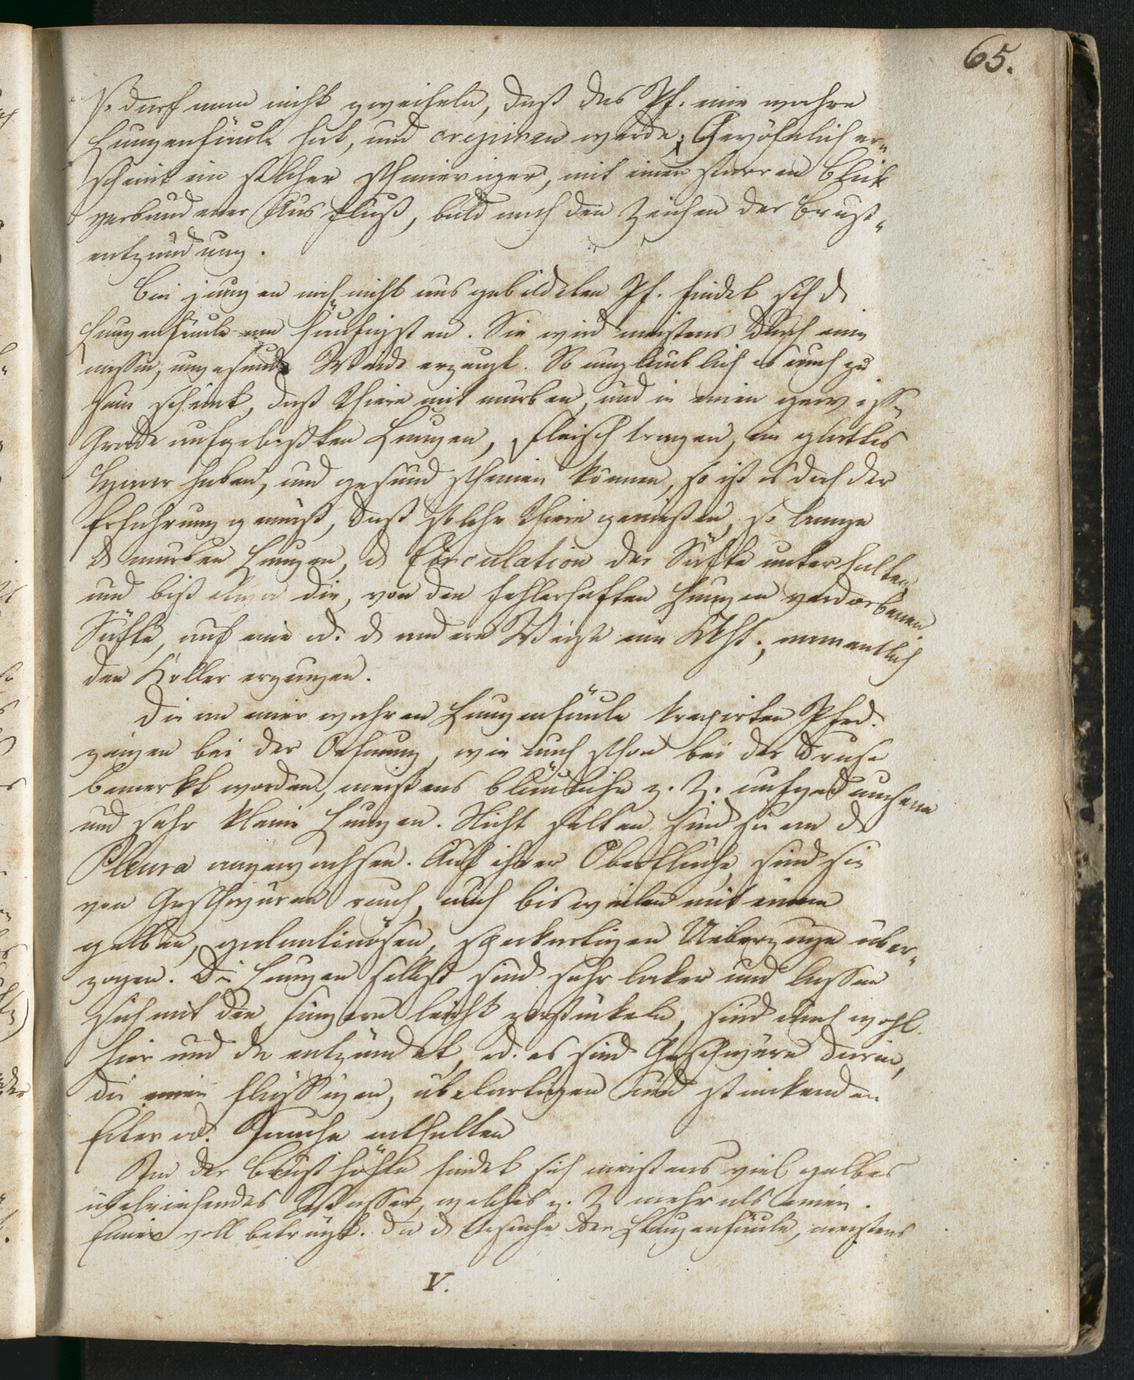 65.
so darf man nicht zweifeln, daß das Pf. eine wahre
Lungenfäule hab, und crepiren werde. Gewöhnlich er-
scheint ein solcher schmieriger, mit einem starren Blick
verbundener Ausfluß, bald nach den Zeichen der Brust-
entzündung.
Bei jungen noch nicht ausgebildeten Pf. findet sich d
Lungenfäule am häufigsten. Sie wird meistens durch eine
nasse, ungesunde Weide erzeugt. So unglaublich es auch zu
sein scheint, daß Thiere mit mürben, und in einem gewiss.
Grade aufgelößten Lungen, Fleisch tragen, ein glattes
haben, und gesund scheinen können, so ist es doch der
Erfahrung gemäß, daß solche Thiere genießen, so lange
d mürben Lungen, d Circulation der Säfte unterhalten
und biß die, von den fehlerhaften Lungen verdorbenen
Säfte, auf eine od. d andere Weise eine Kkht., namentlich
den Koller erzeugen.
Die an einer wahren Lungenfäule krepirten Pferd.
zeigen bei der Oefnung, wie auch schon bei der Druse
bemerkt worden, meistens bläuliche z. Z. aufgedunsene
und sehr kleine Lungen. Nicht selten sind sie an d
Pleura angewachsen. Auf ihrer Oberfläche sind sie
von Geschwüren rauh, auch bisweilen mit einem
gelben, gelantinösen, speckartigen Ueberzuge über-
zogen. Die Lungen selbst sind sehr locker und lassen
sich mit den Fingern leicht zerstückeln, sind auch wohl
hier und da entzündet, od. es sind Geschwüre darin,
die einen flüssigen, übelartigen und stinkenden
Eiter od. Jauche enthalten
In der Brusthöhle findet sich meistens viel gelbes
übelriechendes Wasser, welches z. Z. mehr als einen
Eimer voll beträgt. Da d Ursache der Lungenfäule, meistens
V.